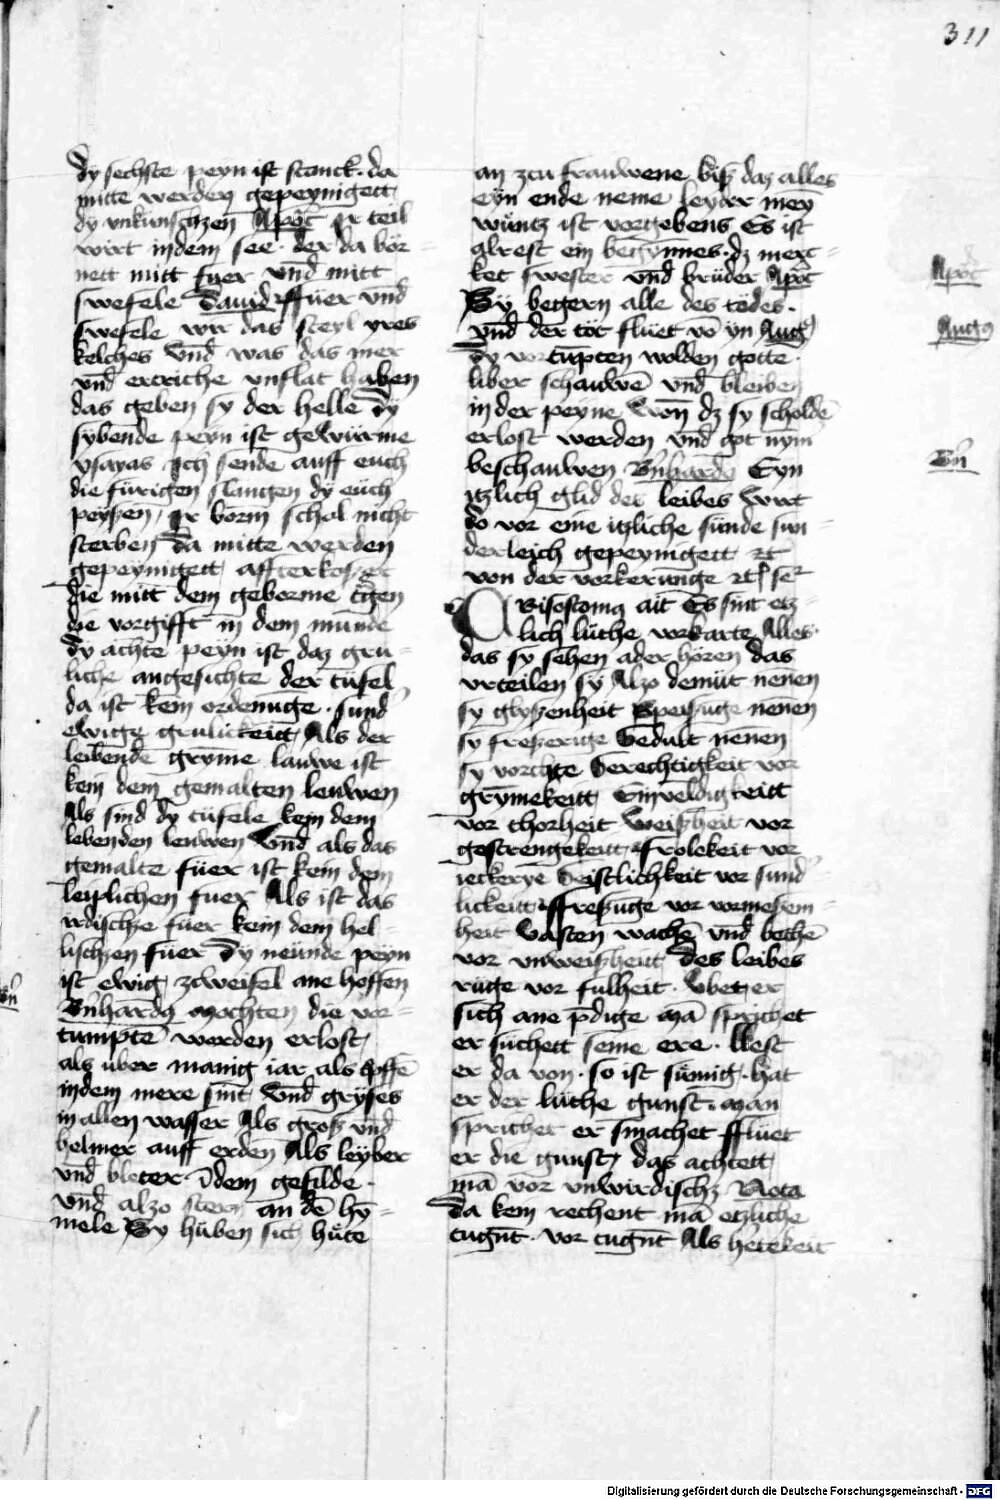 311
dy sechste peyn ist stanck · da
mitte werden gepeynigett
dy vnkuns Apoc̄ Ir teil
wirt in dem see · der da bör-
nett mitt fuer vnd mitt
swefele Dauid ffüer vnd
swefele wir das steyl yres
kelches Vnd was das mer
vnd ertriche vnflat haben
das geben sy der helle Dy
sybende peyn ist gewürme
ysayas Ich sende auff euch
die fürigen slangen dy eüch
peyßen, Ir borm schol nicht
sterben Da mitte werden
gepeynigett, affterkoßer
die mitt dem geborme
die vorgifft in dem munde
dy achte peyn ist daz gru-
liche angesichte der tüfel
da ist kein ordenūge · sund̄
ewige grulickeitt, Als der
lebende gryme lauwe ist
kein dem gemalten leuwen
Als sind dy tüfele kein dem
lebenden leuwen Vnd als das
gemalte füer ist kein dem
leiplichen fuer Als ist das
irdische füer kein dem hel-
lischzen füer Dy neünde peyn
ist ewig zcweifel ane hoffen
Bn̄
Bn̄hardꝰ Mochten die vor-
tumptē werden erlost,
als über manig iar, als
in dem mere sint, Vnd gryses
in allen wasser Als groß vnd
helmer auff erden Als leyber
vnd bleter · ī dem gefilde ·
vnd alzo stern an dē hy-
mele Sy hüben sich hüte
an zcu frauwene biß daz alles
eyn ende neme leyder mey
ist vorgebens Es ist
alrest ein begynnes · dz merc-
ket swester vnd brüder Apoc̄
Apoc̄
Sy begern alle des todes ·
vnd der tot flüet vō yn Augꝰ
Augꝰ
Dy vortūpten wolden gotte ·
liber schauwē vnd bleiben
in der peyne Won dz sy scholdē
erlost werden vnd got nym
beschauwen Bn̄hardꝰ Eyn
Bn̄
itzlich glid des leibes wirt
do vor eine itzliche sünde sun-
derleich gepeynigett
von der vorkerunge
Crisostomꝰ ait Es sint etz-
lich lüthe vorkarte Alles
das sy sehen ader hören das
vrteilen sy Alzo demüt nenen
sy glyßenheit Speisūge nenen
sy freßerige Gedult nenen
sy vorchte Gerechtigkeit vor
grymekeitt Einveldigkeitt
vor thorheit Weißheit vor
gestrengekeitt, Frolekeit vor
ieckerye Geistlichkeit vor sund-
lickeitt, ffreßūge vor vormesen-
heit Vasten wachē vnd bethē
vor vnweißheit Des leibes
rüge vor fulheit ·
sich ane p̄dige Mā sprichet
er suchett seine ere · llest
er da von · so ist sümig · hat
er der lüthe gunst · Man
sprichet er smachet fflüet
er die gunst, das achtett
mā vor vnwirdischz Nota
Da kein rechent mā etzliche
tugn̄t · vor tugn̄t Als hertekeit
Digitalisierung gefördert durch die Deutsche Forschungsgemeinschaft - DFG